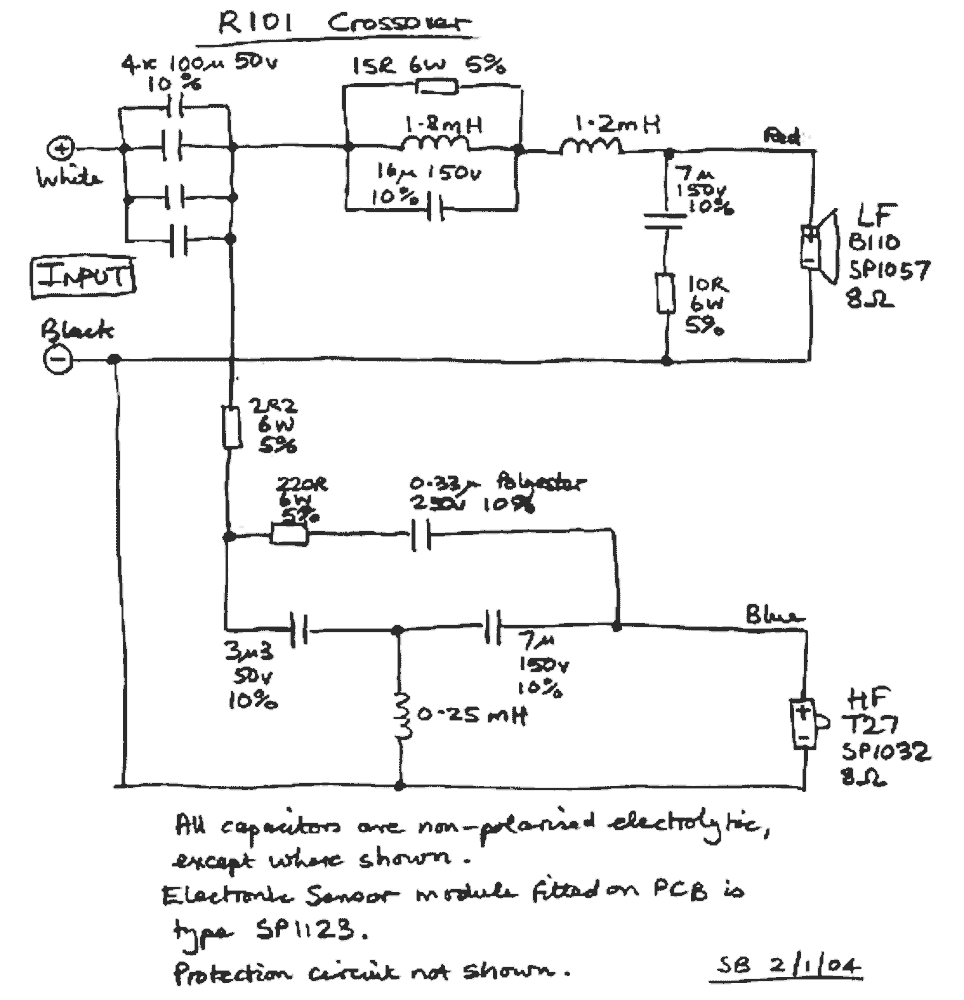 R101 Crossover
4x 100μ 50v
10%
15R 6W 5%
1.8mH
16μ 150v
10%
1.2mH
Red
7μ
150v
10%
10R
6W
5%
LF
B110
SP1057
8Ω
+
White
INPUT
Black
-
2R2
6W
5%
220R
6W
5%
0.33μ Polyester
250v 10%
3μ3
50v
10%
7μ
150v
10%
0.25mH
Blue
HF
T27
SP1032
8Ω
+
-
+
-
All capacitors are non-polarised electrolytic,
except where shown.
Electronic Sensor module fitted on PCB is
type SP1123.
Protection circuit not shown.
SB 2/1/04